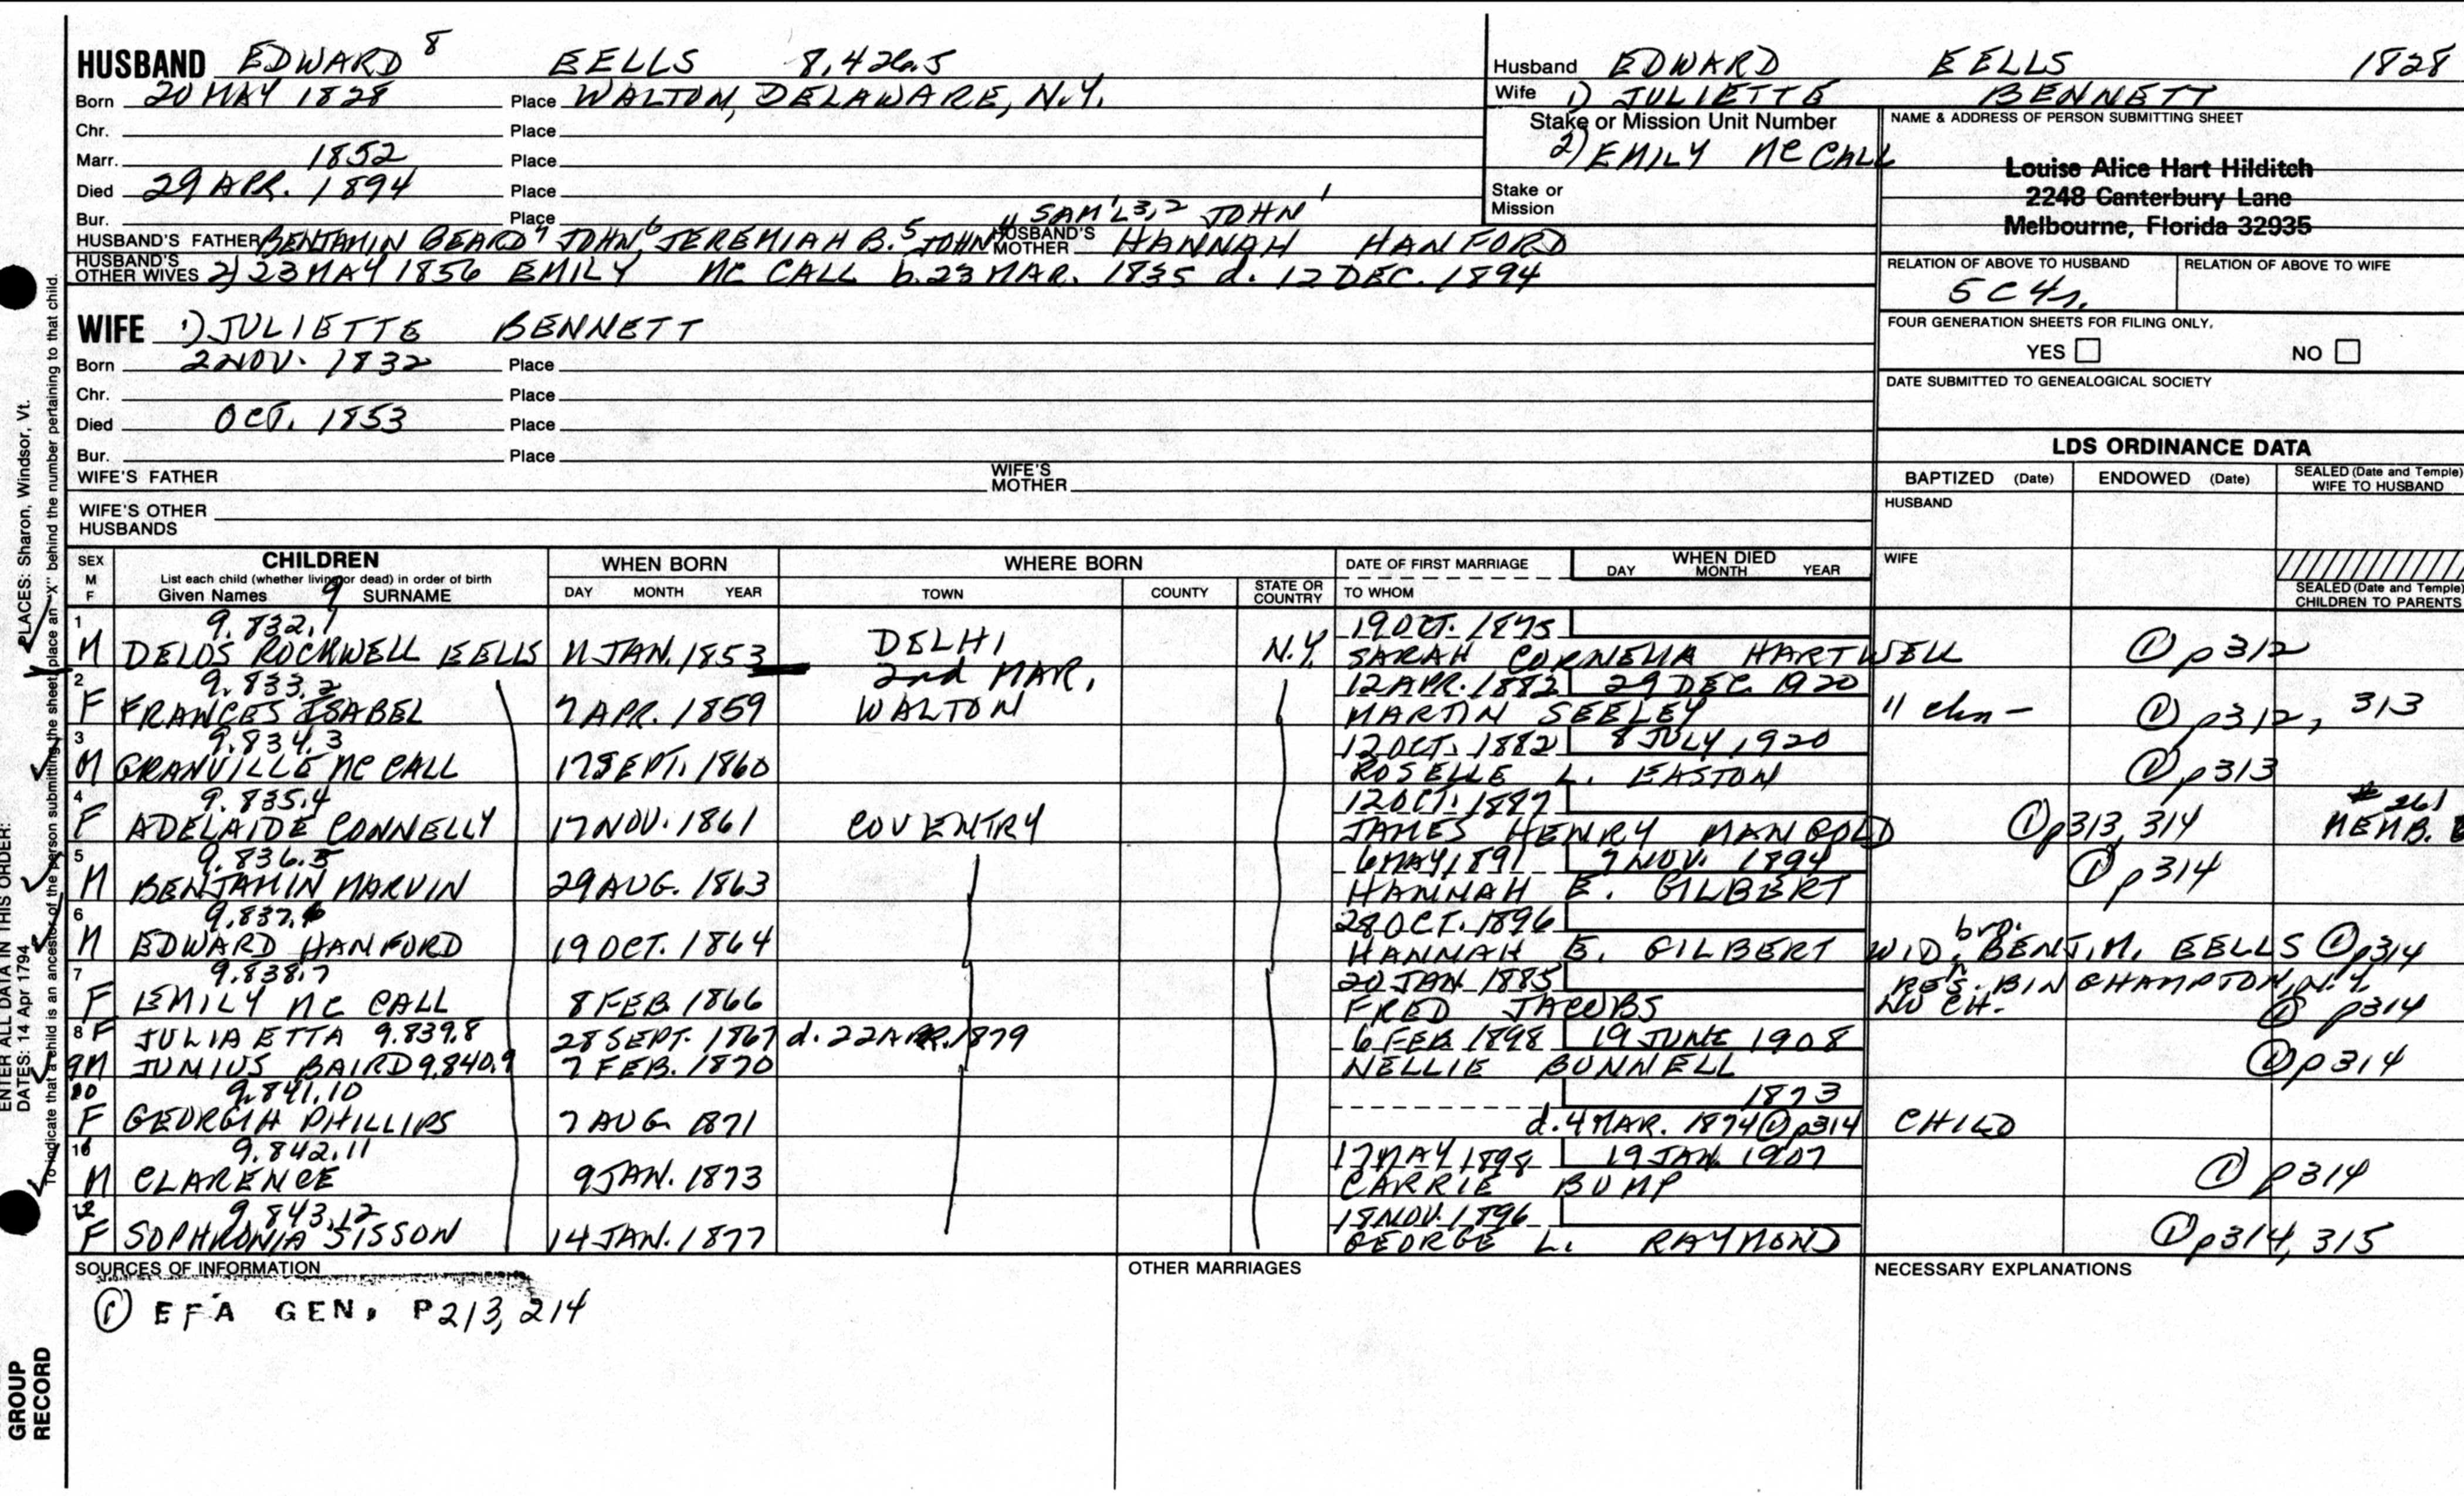 HUSBAND EDWARD 8 EELLS 8,426.5
Born 20 MAY 1828 Place WALTON, DELAWARE, N.Y.
Chr. Place
Marr. 1852 Place
Died 29 APR. 1894 Place
Bur. Place
4 SAM'L 3,2 JOHN 1
HUSBAND'S FATHER BENJAMIN BEARD 7 JOHN 6 JEREMIAH B. 5 JOHN HUSBAND'S MOTHER HANNAH HANFORD
HUSBAND'S OTHER WIVES 2) 23 MAY 1856 EMILY MC CALL b. 23 MAR. 1835 d. 12 DEC. 1894
WIFE 1) JULIETTE BENNETT
Born 2 NOV. 1832 Place
Chr. Place
Died OCT. 1853 Place
Bur. Place
WIFE'S FATHER WIFE'S MOTHER
WIFE'S OTHER HUSBANDS
Husband EDWARD EELLS 1828
Wife 1) JULIETTE BENNETT
Stake or Mission Unit Number
2) EMILY MC CALL
Stake or Mission
NAME & ADDRESS OF PERSON SUBMITTING SHEET
Louise Alice Hart Hilditch
2248 Canterbury Lane
Melbourne, Florida 32935
RELATION OF ABOVE TO HUSBAND RELATION OF ABOVE TO WIFE
5 C 4r.
FOUR GENERATION SHEETS FOR FILING ONLY.
YES NO
DATE SUBMITTED TO GENEALOGICAL SOCIETY
LDS ORDINANCE DATA
BAPTIZED (Date) ENDOWED (Date) SEALED (Date and Temple) WIFE TO HUSBAND
HUSBAND
WIFE
SEALED (Date and Temple) CHILDREN TO PARENTS
SEX M F CHILDREN WHEN BORN WHERE BORN DATE OF FIRST MARRIAGE WHEN DIED
List each child (whether living or dead) in order of birth DAY MONTH YEAR
Given Names 9 SURNAME DAY MONTH YEAR TOWN COUNTY STATE OR COUNTRY TO WHOM
1 9.832.1 19 OCT. 1875
M DELOS ROCKWELL EELLS 11 JAN. 1853 DELHI N.Y. SARAH CORNELIA HARTWELL 1 p312
2 9.833.2 2nd MAR. 12 APR. 1882 29 DEC. 1920
F FRANCES ISABEL 7 APR. 1859 WALTON MARTIN SEELEY 11 chn - 1 p312, 313
3 9.834.3 12 OCT. 1882 8 JULY 1920
M GRANVILLE MC CALL 17 SEPT. 1860 ROSELLE L. EASTON 1 p313
4 9.835.4 12 OCT. 1887 # 261
F ADELAIDE CONNELLY 17 NOV. 1861 COVENTRY JAMES HENRY MANGOLD 1 p313, 314 MEMB.
5 9.836.5 6 MAY 1891 7 NOV. 1894
M BENJAMIN MARVIN 29 AUG. 1863 HANNAH E. GILBERT 1 p314
6 9.837.6 28 OCT. 1896 bro.
M EDWARD HANFORD 19 OCT. 1864 HANNAH E. GILBERT WID. BENJ. M. EELLS 1 p314
7 9.838.7 20 JAN 1885 RES. BINGHAMPTON, N.Y.
F EMILY MC CALL 8 FEB. 1866 FRED JACOBS NO CH. 1 p314
8 F JULIA ETTA 9.839.8 28 SEPT. 1867 d. 22 APR. 1879 6 FEB. 1898 19 JUNE 1908
9 M JUNIUS BAIRD 9.840.9 7 FEB. 1870 NELLIE BUNNELL 1 p314
10 9.841.10 1873
F GEORGIA PHILLIPS 7 AUG. 1871 d. 4 MAR. 1874 1 p314 CHILD
11 9.842.11 17 MAY 1898 19 JAN. 1907
M CLARENCE 9 JAN. 1873 CARRIE BUMP 1 p314
12 9.843.12 18 NOV. 1896
F SOPHRONIA SISSON 14 JAN. 1877 GEORGE L. RAYMOND 1 p314, 315
SOURCES OF INFORMATION OTHER MARRIAGES NECESSARY EXPLANATIONS
1 EFA GEN. P213, 214
ENTER ALL DATA IN THIS ORDER:
PLACES: Sharon, Windsor, Vt.
DATES: 14 Apr 1794
To indicate that a child is an ancestor of the person submitting the sheet, place an "X" behind the number pertaining to that child.
GROUP
RECORD